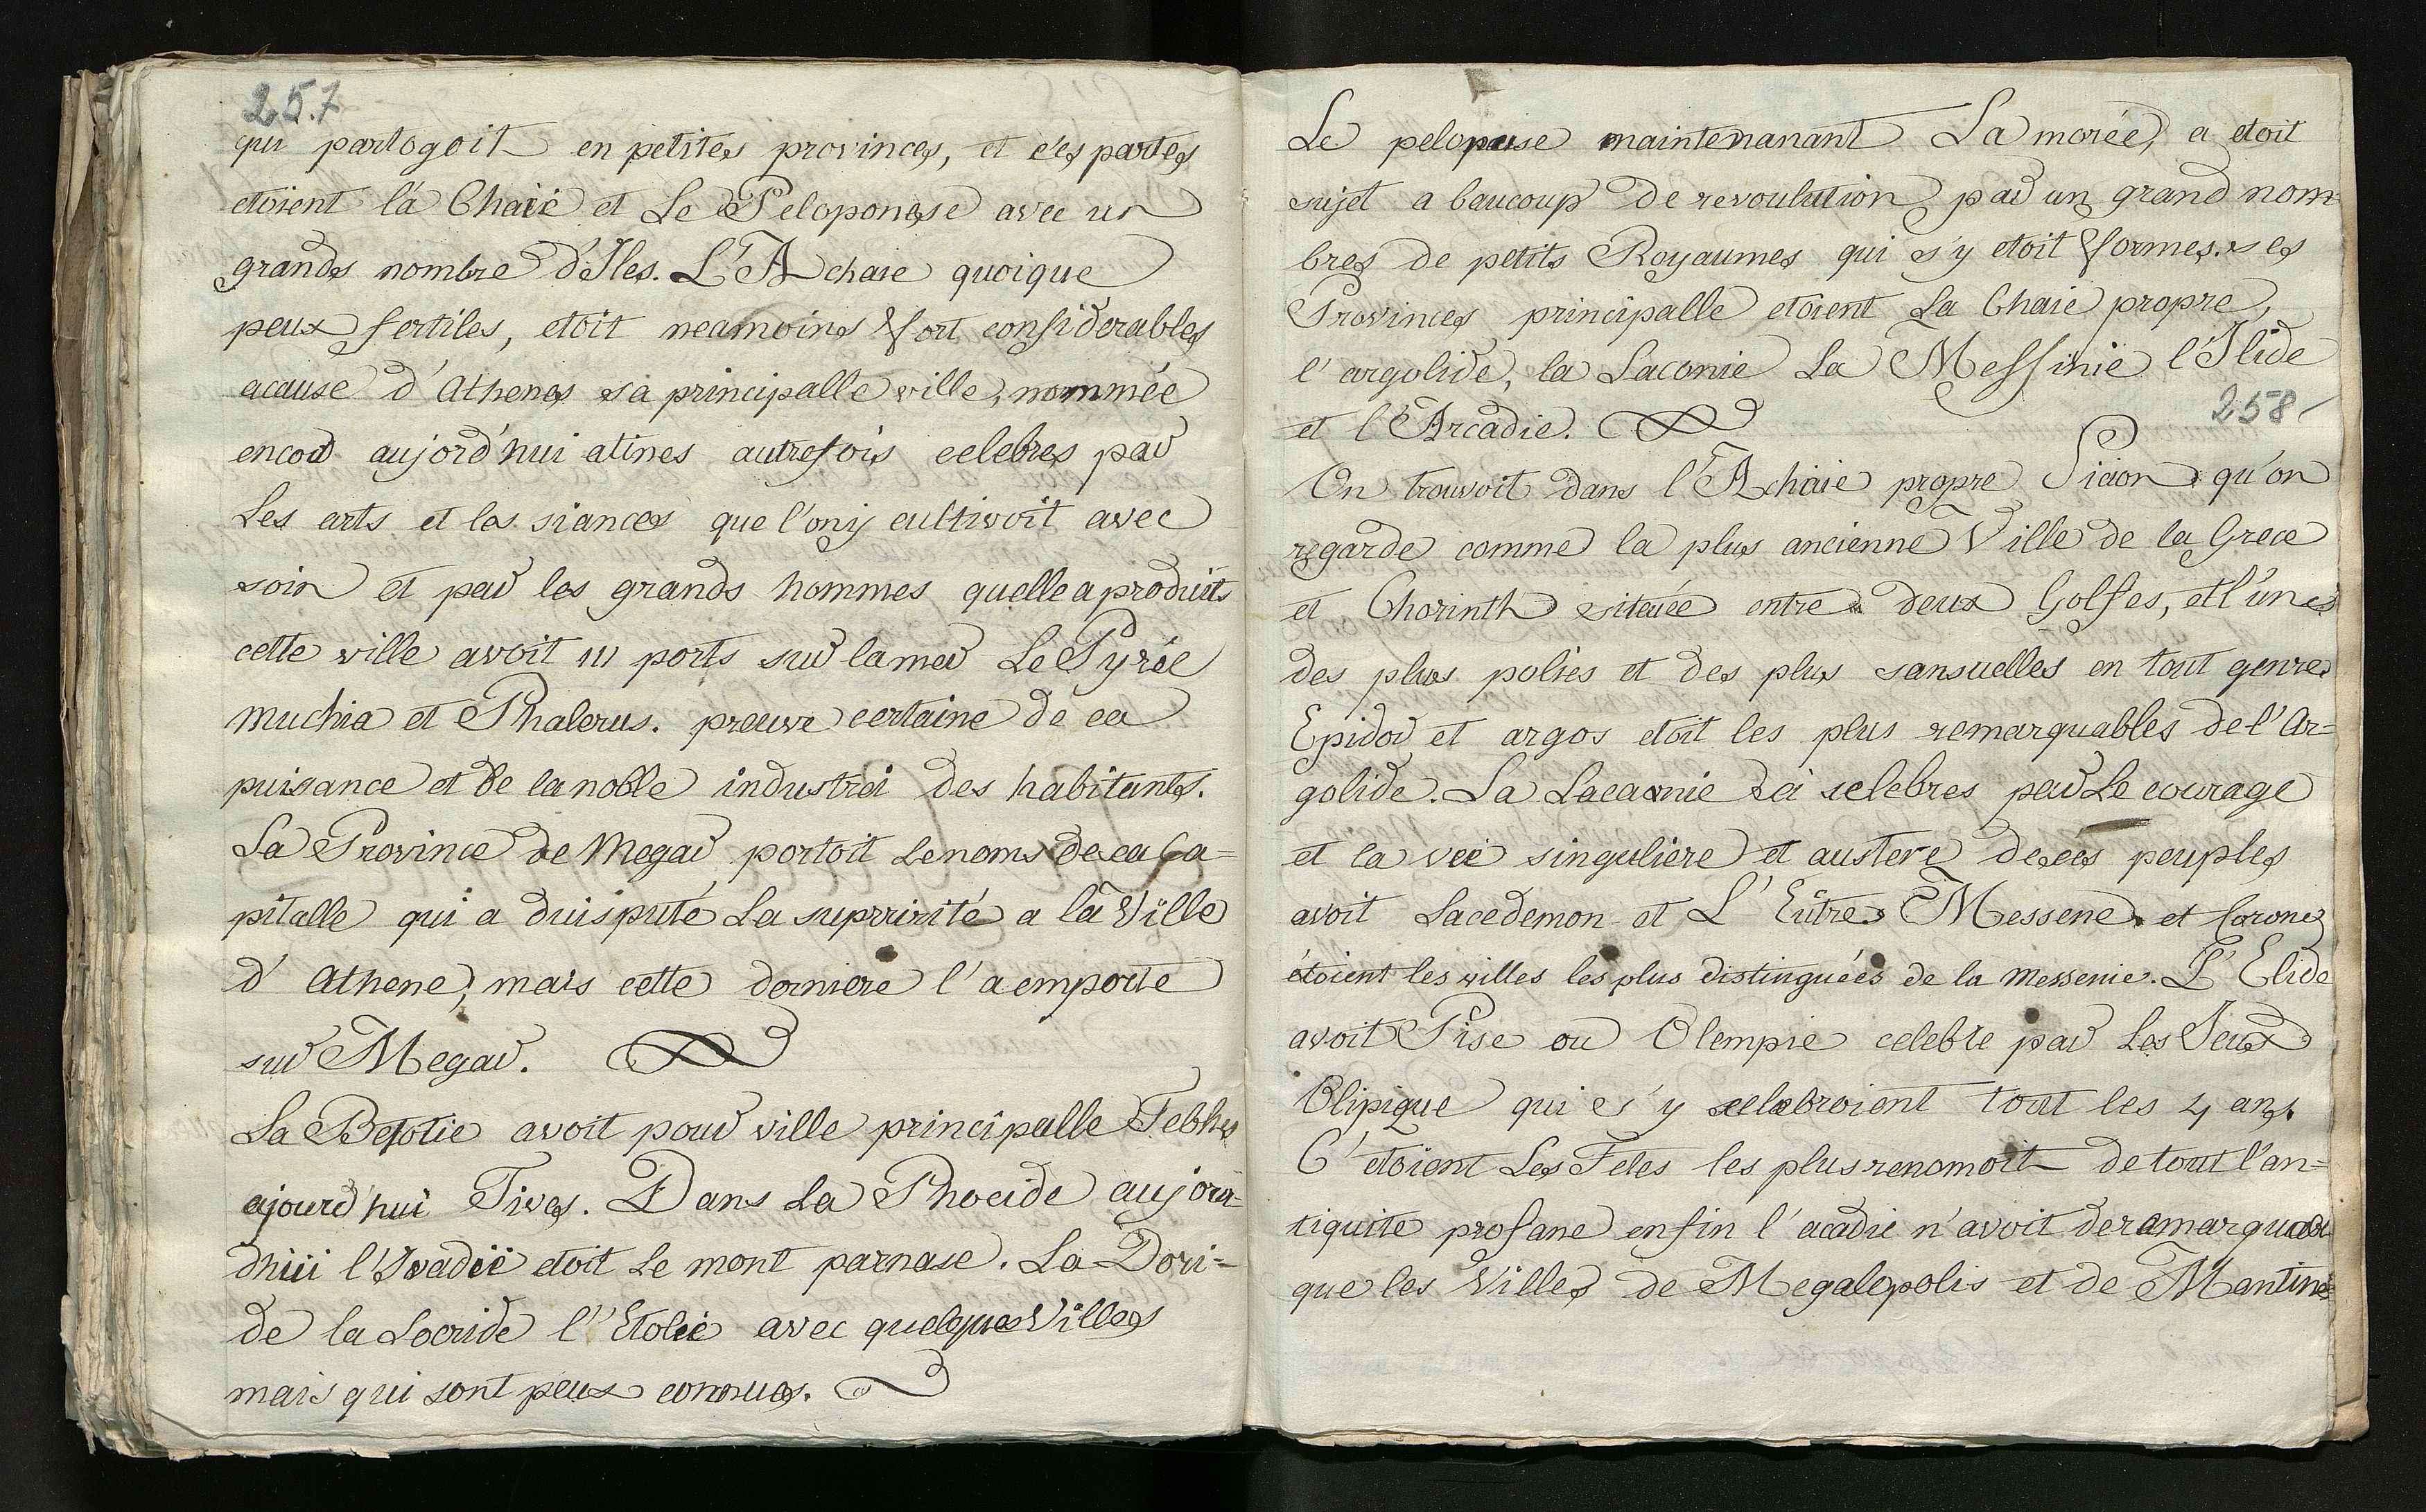 257
qui partogoit en petites provinces, et c'es partes
etoient l'a Chaië et Le Peloponese avec un
grands nombre d'Iles. L'Achaie quoique
peux fertiles, etoit neamoins fort considerables
acause d'Athenes sa principalle ville, nommée
encor aujord'hui atines autrefois celebres par
Les arts et les siances que l'on y cultivoit avec
soin et par les grands hommes quelle a produits
cette ville avoit III ports sur la mer Le Pyrée
Muchia et Phalerus. preuve certaine de ca
puisance et de la noble industrei des habitants.
La Province de Megar portoit Le noms de ca Ca=
pitalle qui a duisputé La supririté a la Ville
d'Athene, mais cette derniere l'a emporté
sur Megar.
La Betotie avoit pour ville principalle Tebhes
ajourd'hui Tives. Dans La Phocide aujour-
dhui l'Ivadië etoit Le mont parnase. La Dori=
de la Locride l'Etolie avec quelques Villes
mais qui sont peux connues.
Le pelopnise maintenanant La morée, a etoit
sujet a baucoup De revoulution par un grand nom-
bres de petits Royaumes qui s'y etoit formes. ses
Provinces principalle etoient La Chaie propre,
l'argolide, la Laconie La Messinie l'Ilide
258
et l'Arcadie.
On trouvoit dans l'Achaie propre Sicion qu'on
regarde comme la plus ancienne Ville de la Grece
et Chorinth située entre deux Golfes, et l'unes
des plus polies et des plus sansuelles en tout genres
Epidor et argos etoit les plus remarquables de l'Ar=
golide. La Lacaonie si selebres par Le courage
et la veie singuliere et austere de sés peuples
avoit Lacedemon et L'Eutres Messene et Corones
étoient les villes les plus distinguées de la Messenie. L'Elide
avoit Pise ou Olempie celebre par Les Jeux
Olipique qui s'y selebroient tout les 4 ans.
C'etoient Les Fetes les plus renomoit de tout l'an=
tiquite profane enfin l'acadie n'avoit de ramarquable
que les Villes de Megalepolis et de Mantine